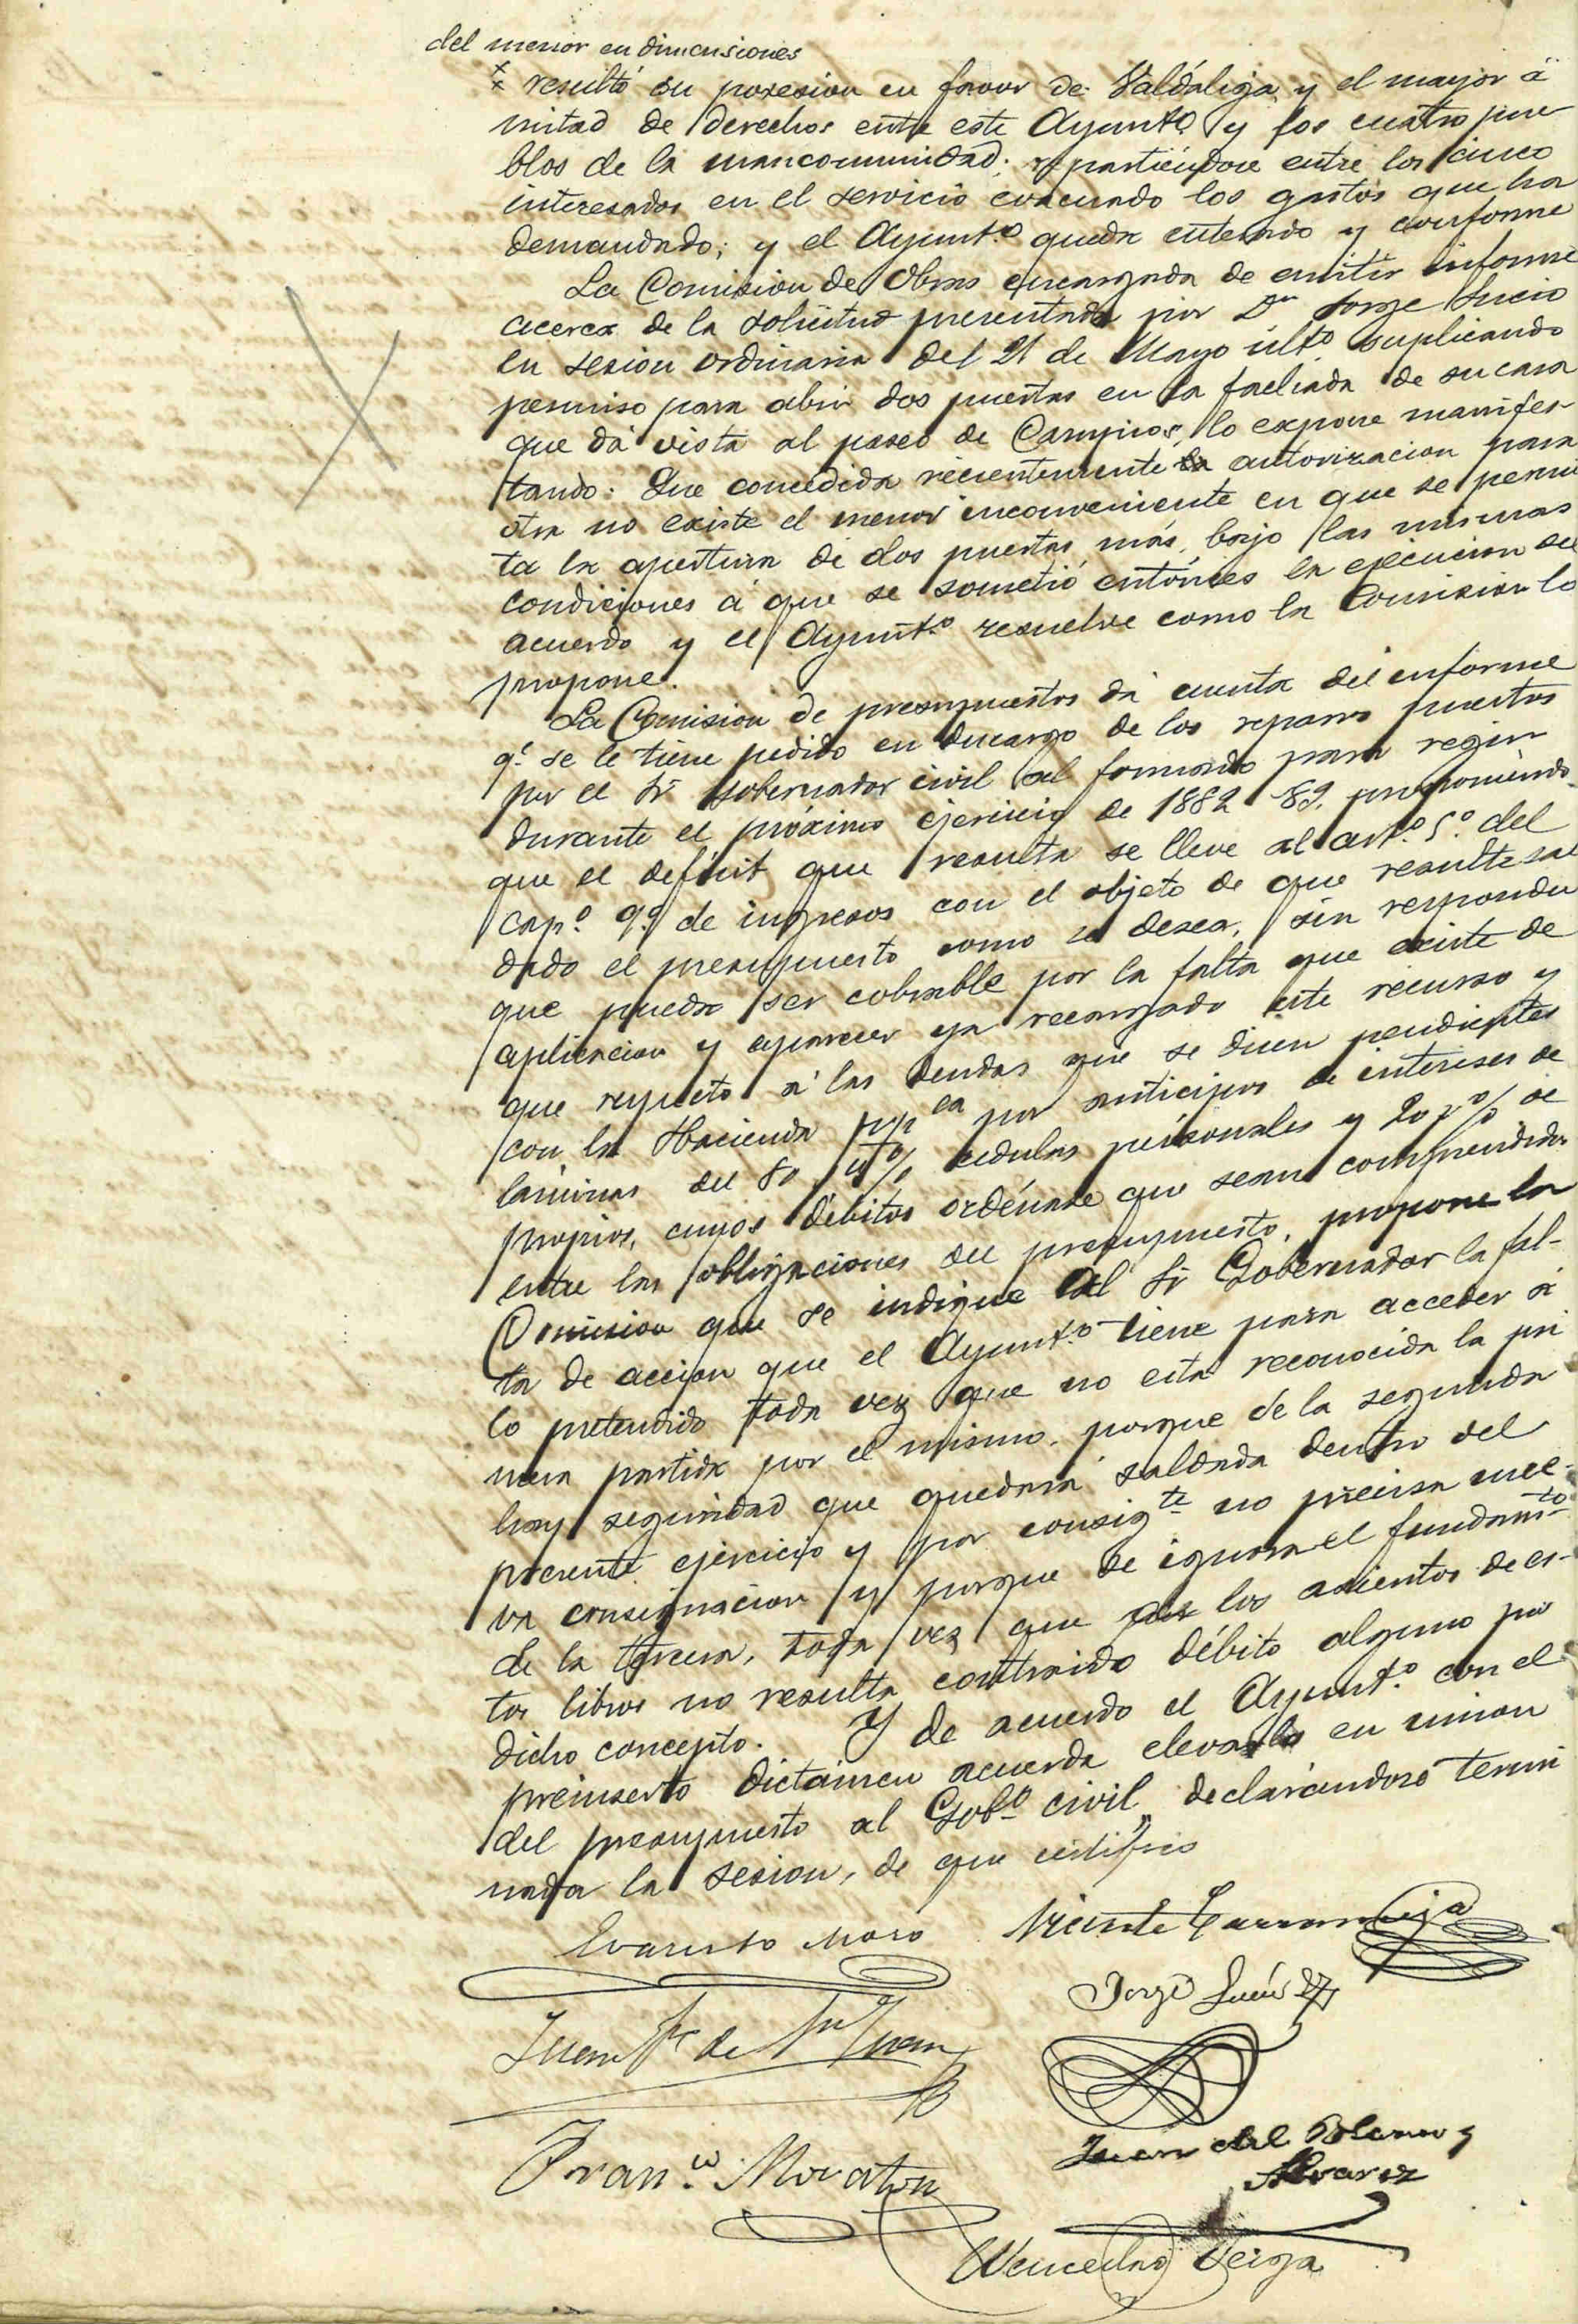 del menor en dimensiones
× resultó su posesion en favor de Valdáliga y el mayor á
mitad de derechos entre este Ayunt.º y los cuatro pue
blos de la mancomunidad; repartiéndose entre los cinco
interesados en el servicio evacuado los gastos que ha
demandado; y el Ayunt.º queda enterado y conforme
La Comision de Obras encargada de emitir informe
acerca de la solicitud presentada por Dn Jorge Lucio
en sesion ordinaria del 21 de Mayo últº suplicando
permiso para abrir dos puertas en la fachada de su casa
que dá vista al paseo de Campios, lo expone manifes-
tando: Que concedida recientemente la autorizacion para
otra no existe el menor inconveniente en que se permi
ta la apertura de dos puertas más, bajo las mismas
condiciones á que se sometió entónces la ejecucion del
acuerdo y el Ayunt.º resuelve como la Comision lo
propone.
La Comision de presupuestos dá cuenta del informe
q.e se le tiene pedido en descargo de los reparos puestos
por el Sr Gobernador civil al formado para regir
durante el próximo ejercicio de 1882-83, proponiendo
que el deficit que resulta se lleve al art.º 5.º del
cap.º 9.º de ingresos con el objeto de que resulte sal
dado el presupuesto como se desea, sin responder
que pueda ser cobrable por la falta que existe de
aplicacion y aparecer ya recargado este recurso y
que respecto á las deudas que se dicen pendientes
con la Hacienda pup.ca por anticipos de intereses de
láminas del 80 p% cédulas personales y 20 p% de
propios, cuyos débitos ordénase que sean comprendidos
entre las obligaciones del presupuesto, propone la
Comision que se indique al Sr Gobernador la fal-
ta de accion que el Ayunt.º tiene para acceder á
lo pretendido toda vez que no está reconocida la pri
mera partida por el mismo, porque de la segunda
hay seguridad que quedará saldada dentro del
presente ejercicio y por consig.te no precisa nue-
va consignacion y porque se ignora el fundam.to
de la tercera, toda vez que por los asientos de es-
tos libros no resulta contraido débito alguno por
dicho concepto. Y de acuerdo el Ayunt.º con el
preinserto dictámen acuerda elevarlo en union
del presupuesto al Gob.º civil, declarándose termi
nada la sesion, de que certifico
Evaristo Moro Vicente
Jorge Lucio
Juan Fz de Sn Juan
Juan del Blanco y
Alvarez
Fran.co Moraton
Wenceslao Veiga